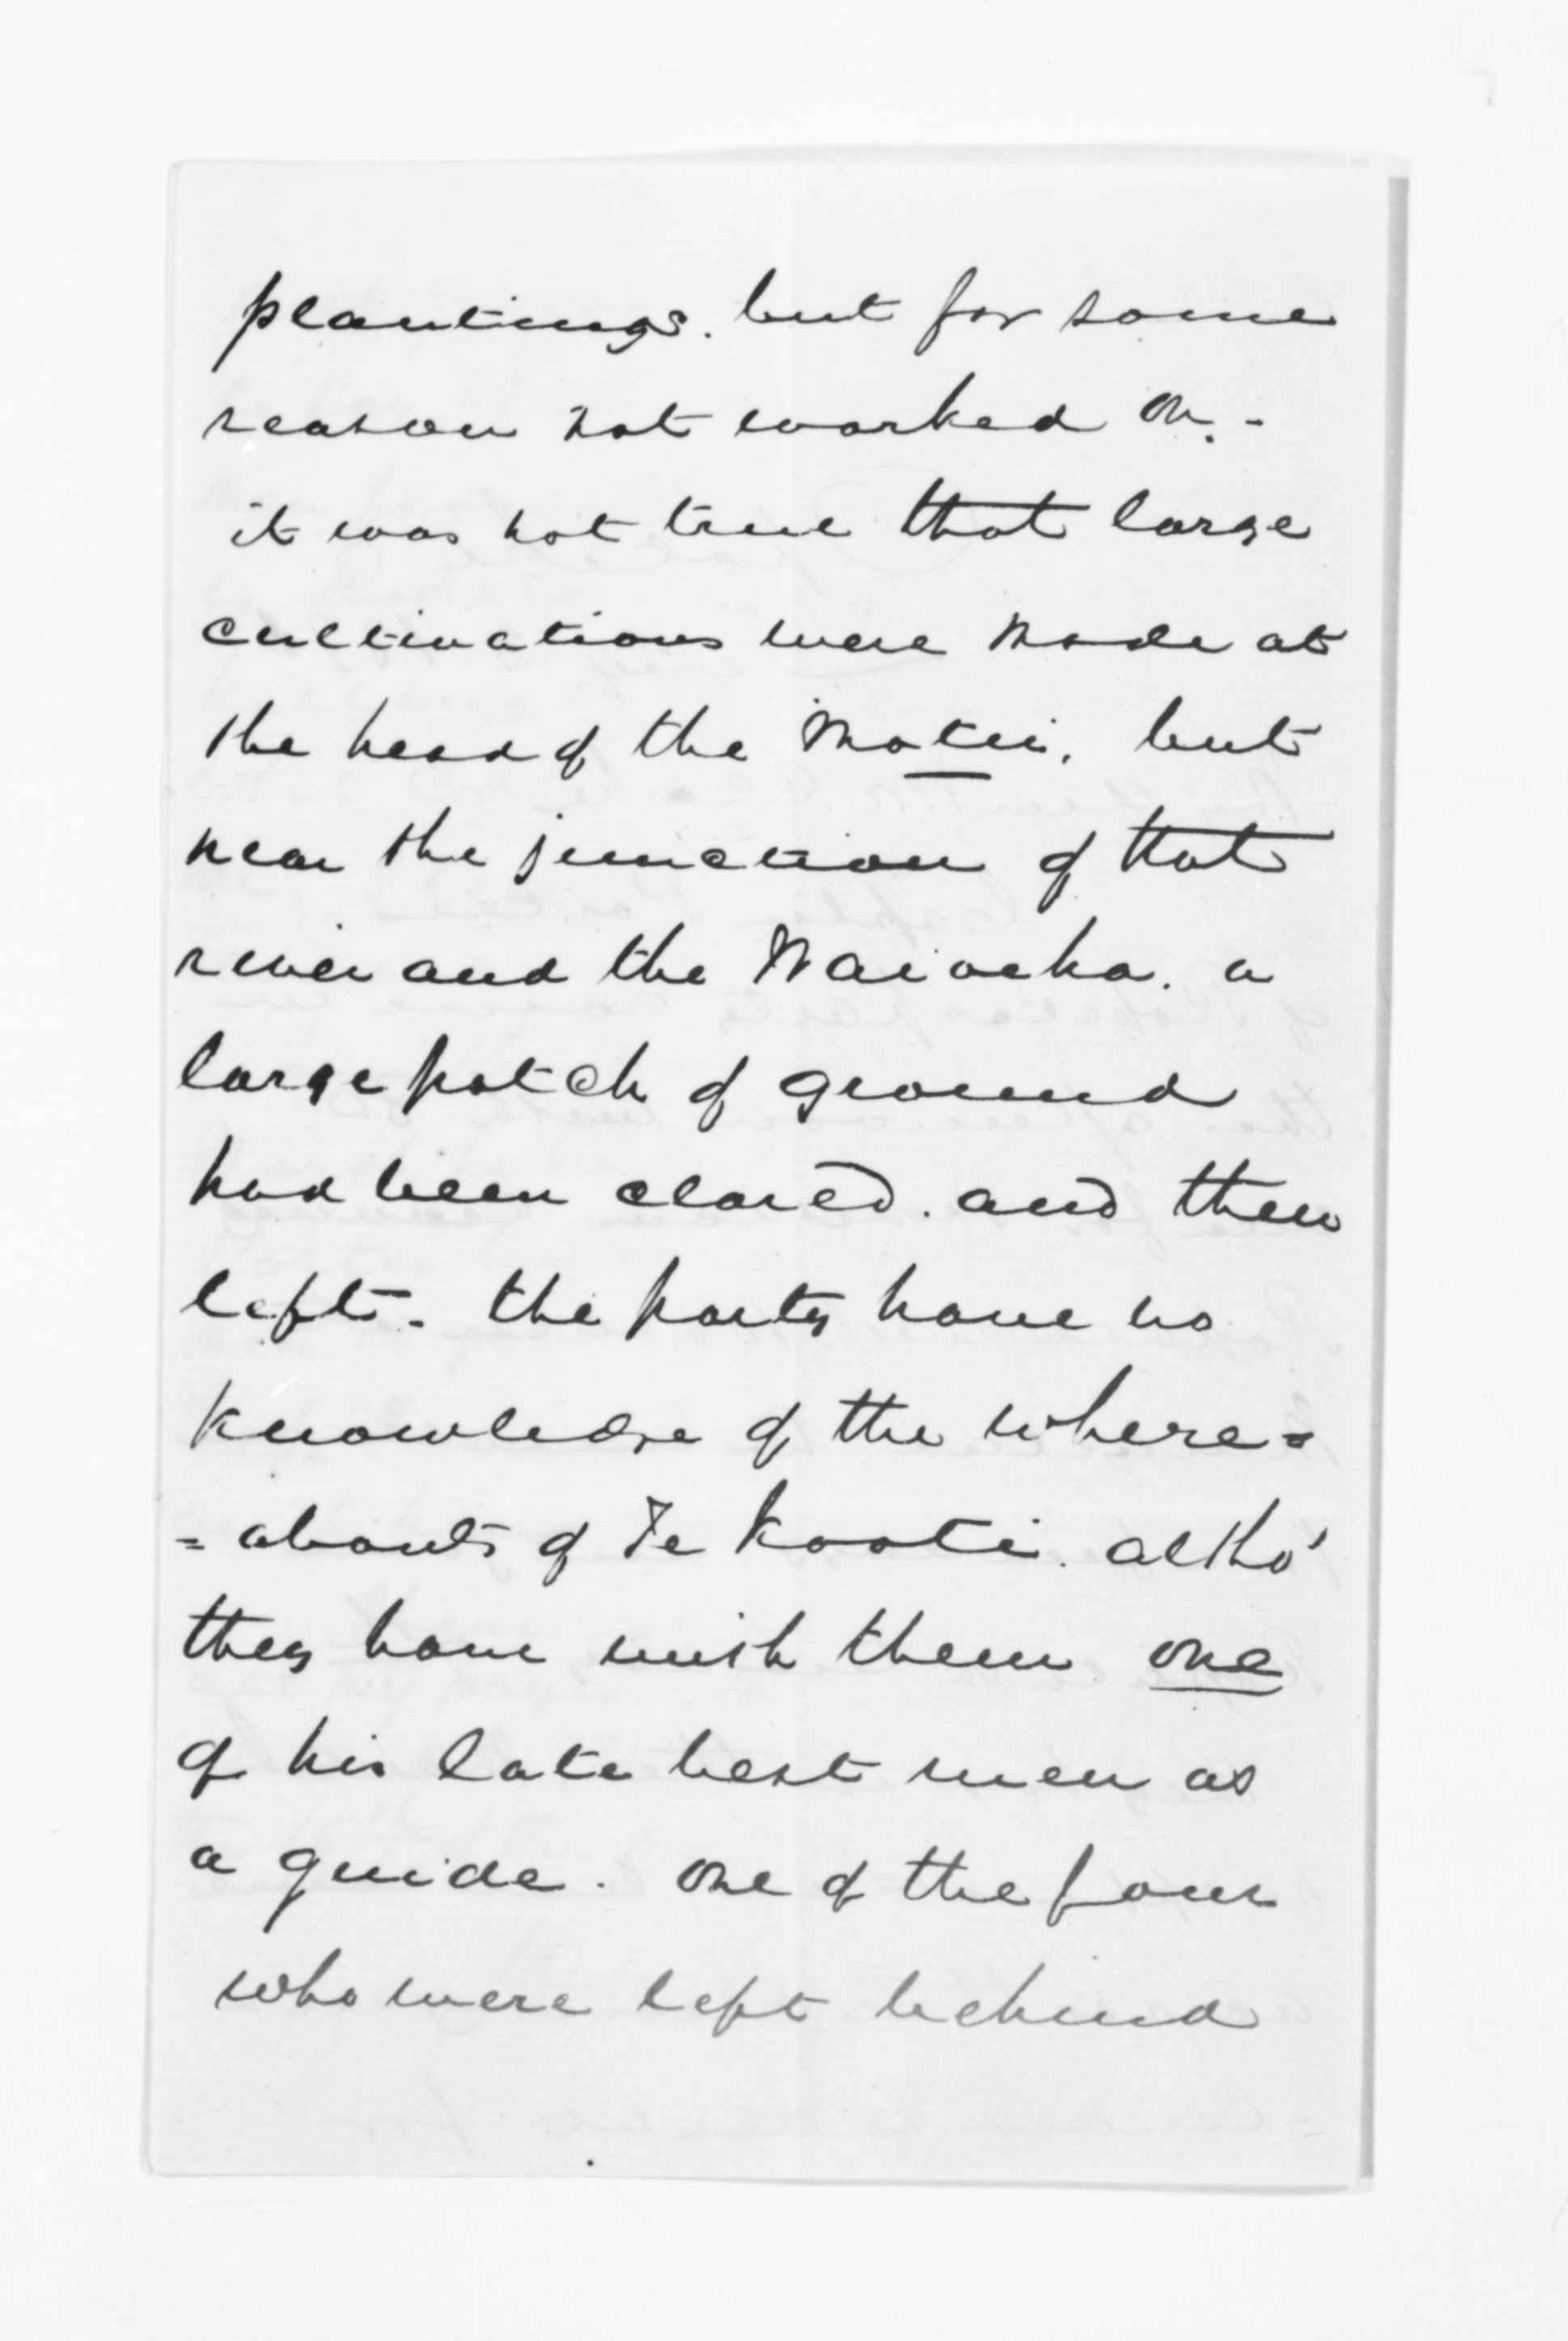 plantings. but for some
reason not worked on. -
it was not true that large
cultivations were made at
the head of the Motu, but
near the junction of that
river and the Waioeka. a
large patch of ground
had been clared. and then
left. the party have no
knowledge of the where=
=abouts of Te Kooti. altho'
they have with them one
of his late best men as
a guide. one of the four
who were left behind